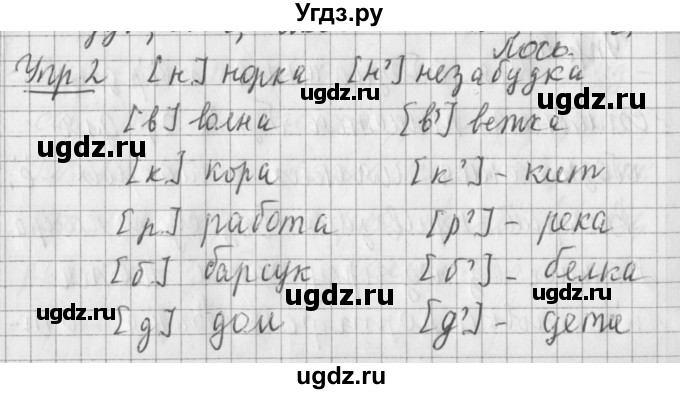 Угдз.ру
Лось.
Упр 2 [н] норка [н'] незабудка
ugdz.ru ugdz.ru
[в] волна [в'] ветка
ugdz.ru ugdz.ru
[к] кора [к'] - кит
[р] работа [р'] - река
ugdz.ru
[б] барсук [б'] - белка
ugdz.ru ugdz.ru
ugdz.ru
[д] дом [д'] - дети
ugdz.ru
ugdz.ru